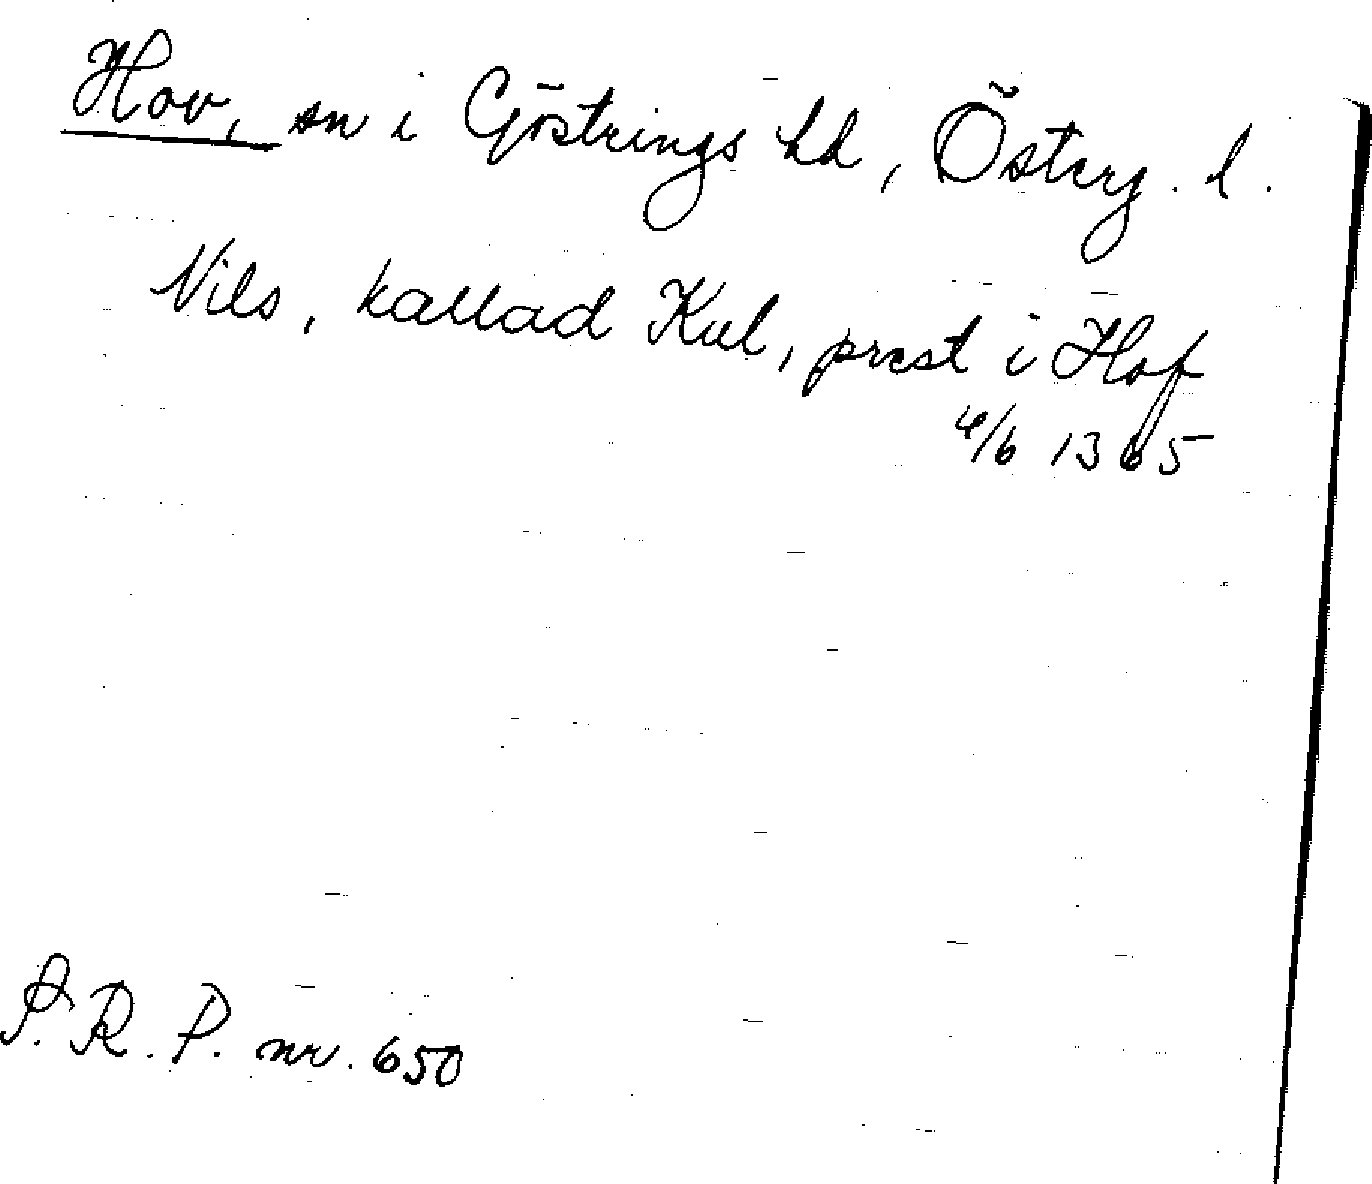 Hov, sn i Göstrings hd, Österg. l.
Nils, kallad Kul, præst i Hof
4/6 1365
S. R. P. nr. 650